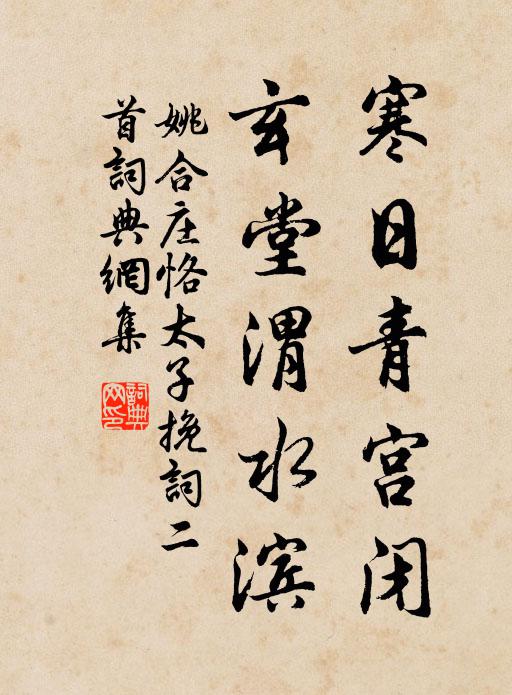 寒日青宫闭
玄堂渭水滨
姚合庄恪太子挽詞二
首詞典網集
詞典
网印